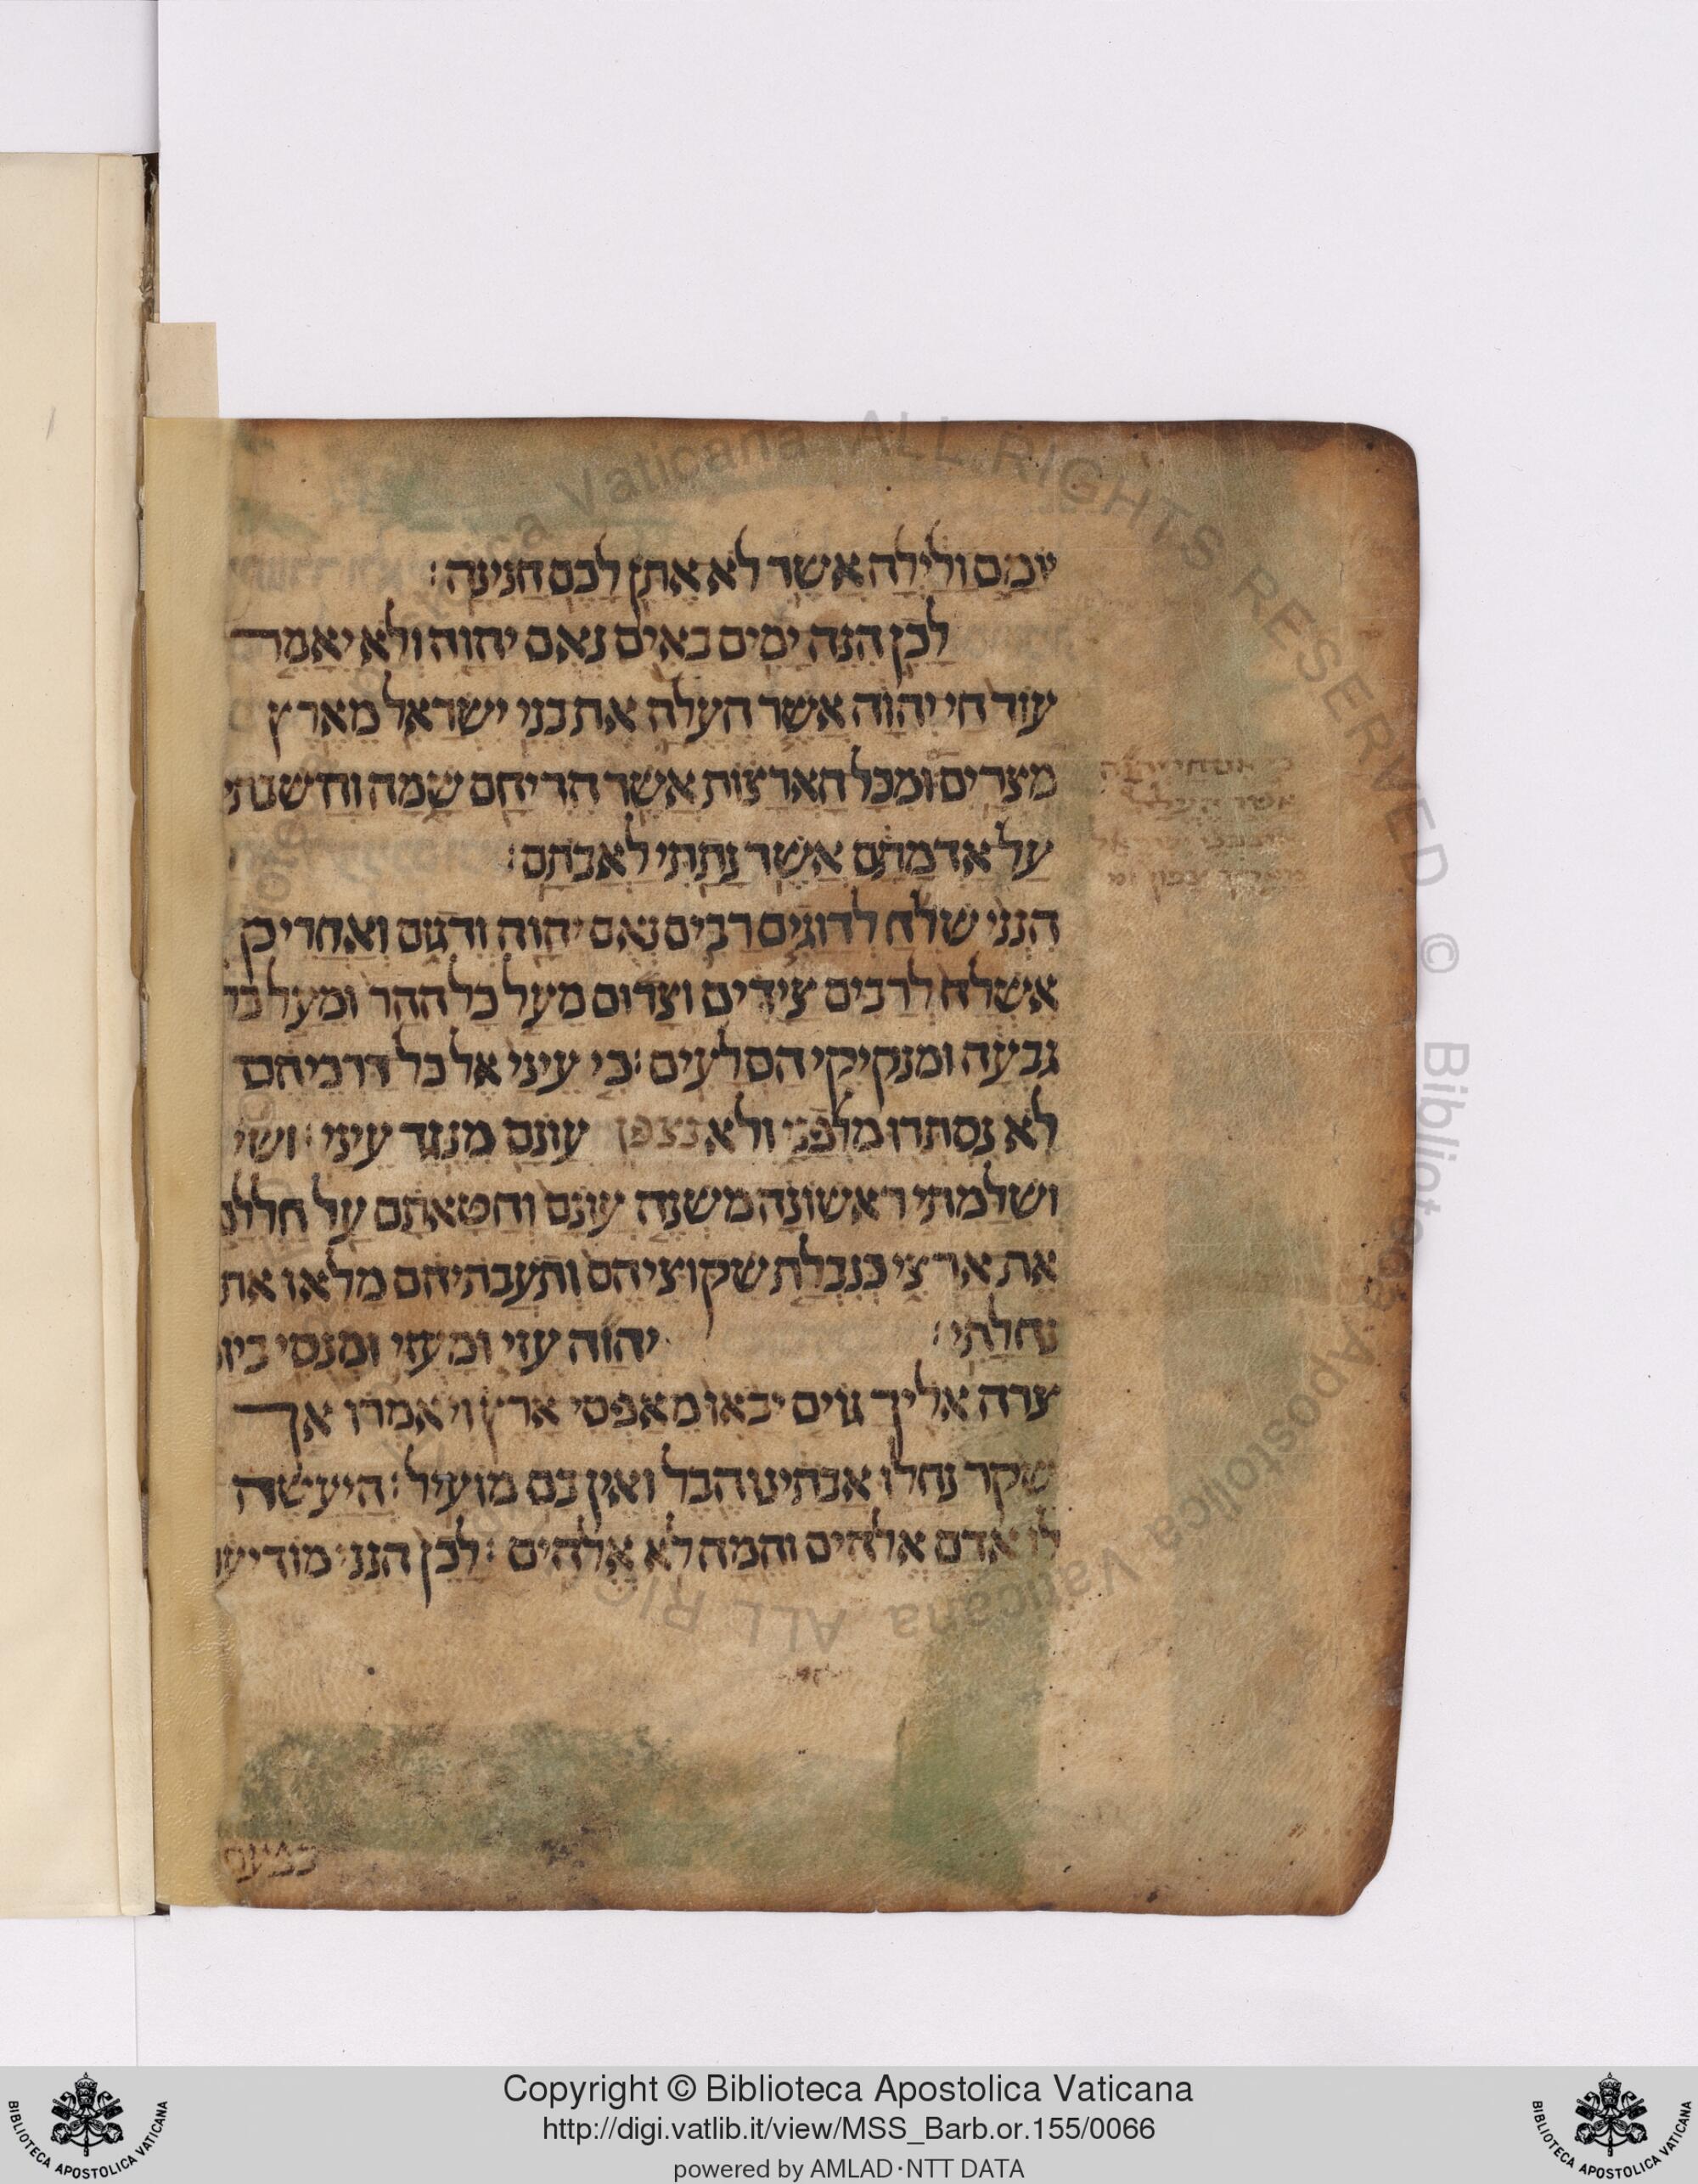 יומם ולילה אשר לא אתן לכם חנינה׃
לכן הנה ימים באים נאם יהוה ולא יאמר
עוד חי יהוה אשר העלה את בני ישראל מארץ
מצרים ומכל הארצות אשר הדיחם שמה והשבתי
על אדמתם אשר נתתי לאבתם׃
הנני שלח לדוגים רבים נאם יהוה ודגום ואחריכן
אשלח לרבים צידים וצדום מעל כל ההר ומעל כל
גבעה ומנקיקי הסלעים׃ כי עיני אל כל דרכיהם
לא נסתרו מלפני ולא נצפן עונם מנגד עיני׃ ושי
ושלמתי ראשונה משנה עונם וחטאתם על חללם
את ארצי בנבלת שקוציהם ותעבתיהם מלאו את
נחלתי׃ יהוה עזי ומעזי ומנסי ביום
צרה אליך גוים יבאו מאפסי ארץ ויאמרו אך
שקר נחלו אבתינו הבל ואין בם מועיל׃ היעשה
לו אדם אלהים והמה לא אלהים׃ לכן הנני מודיעם
כי אם חי יהוה
אשר העלה
את בני ישראל
מארץ צפון ומ
Copyright © Biblioteca Apostolica Vaticana
http://digi.vatlib.it/view/MSS_Barb.or.155/0066
powered by AMLAD·NTT DATA
BIBLIOTECA APOSTOLICA VATICANA
BIBLIOTECA APOSTOLICA VATICANA